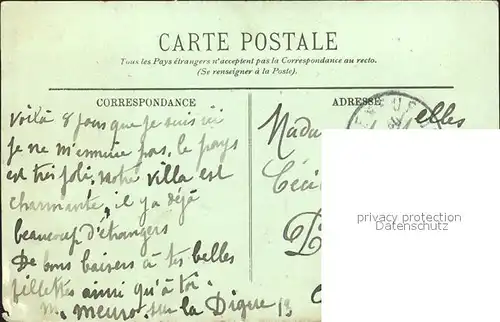 CARTE POSTALE
Tous les Pays étrangers n'acceptent pas la Correspondance au recto.
(Se renseigner à la Poste).
CORRESPONDANCE
ADRESSE
Voilà 8 jours que je suis ici
je ne m'ennuie pas, le pays
est très joli, notre villa est
charmante, il y a déjà
beaucoup d'étrangers
De bons baisers à tes belles
fillettes ainsi qu'à toi
sur la Digue 13
Mada
elles
Céci
privacy protection
www.oldthing.net